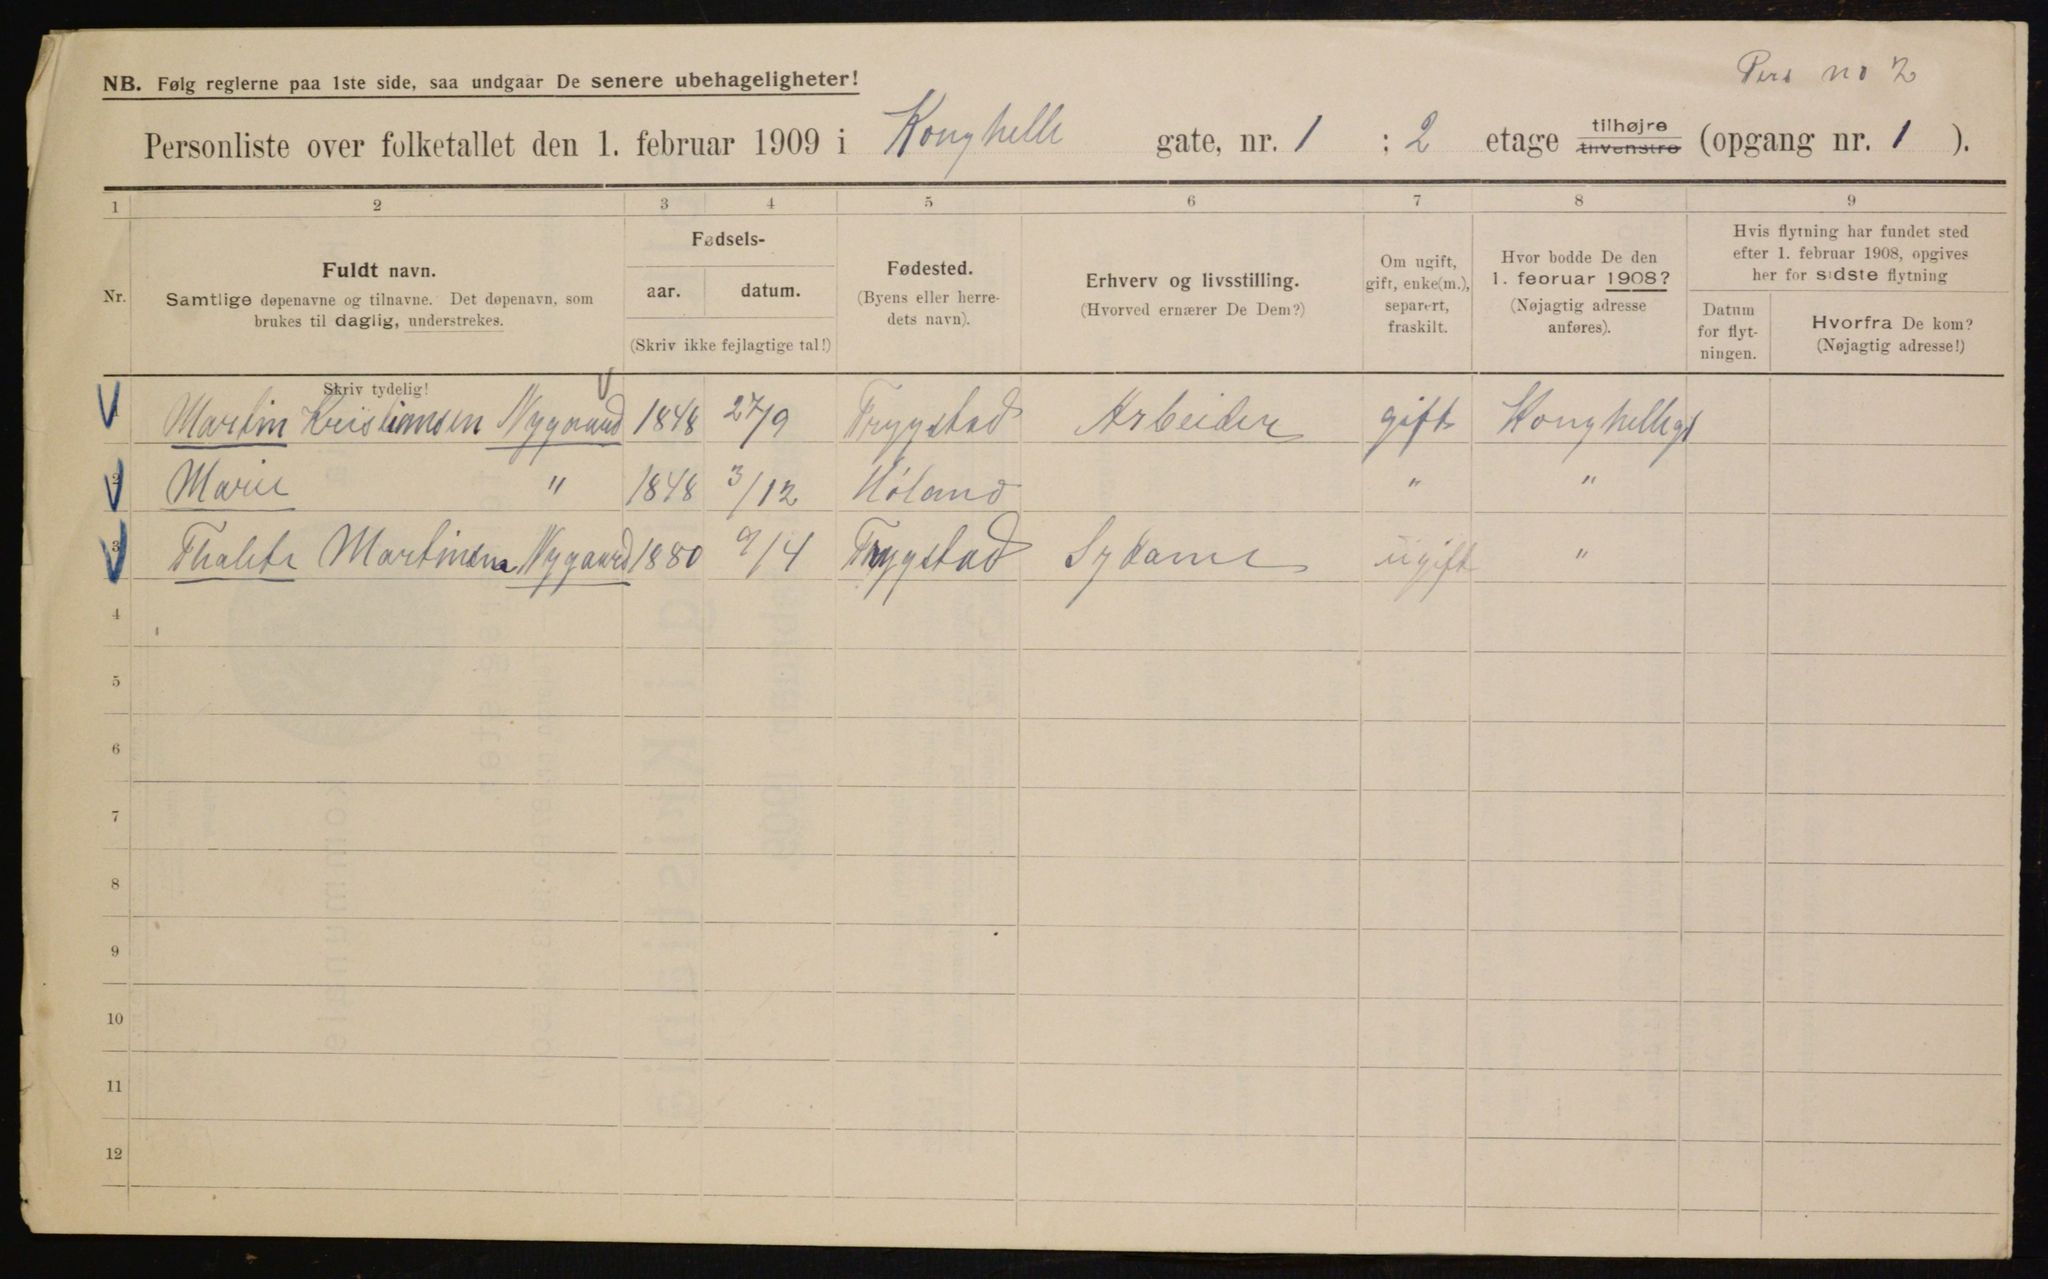 Pers no 2
NB. Følg reglerne paa 1ste side, saa undgaar De senere ubehageligheter!
Personliste over folketallet den 1. februar 1909 i Konghelle gate, nr. 1 : 2 etage tilhøjre tilvenstre (opgang nr. 1 ).
1 2 3 4 5 6 7 8 9
Nr.
Fuldt navn.
Samtlige døpenavne og tilnavne. Det døpenavn, som
brukes til daglig, understrekes.
Fødsels-
aar. datum.
(Skriv ikke fejlagtige tal!)
Fødested.
(Byens eller herre-
dets navn).
Erhverv og livsstilling.
(Hvorved ernærer De Dem?)
Om ugift,
gift, enke(m.),
separert,
fraskilt.
Hvor bodde De den
1. februar 1908?
(Nøjagtig adresse
anføres).
Hvis flytning har fundet sted
efter 1. februar 1908, opgives
her for sidste flytning
Datum
for flyt-
ningen.
Hvorfra De kom?
(Nøjagtig adresse!)
Skriv tydelig!
1 Martin Kristiansen Nygaard 1848 27/9 Trygstad Arbeider gift Konghellegt
2 Marie " 1848 3/12 Høland " "
3 Martinsen Nygaard 1880 9/4 Trygstad Sydame ugift "
4
5
6
7
8
9
10
11
12